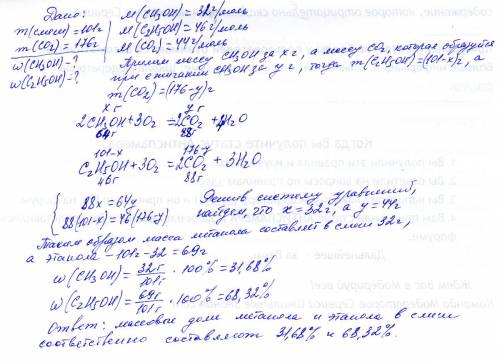 Дано:
m(смеси)=101г
m(CO₂)=176г
w(CH₃OH)-?
w(C₂H₅OH)=?
M(CH₃OH)=32г/моль
M(C₂H₅OH)=46г/моль
M(CO₂)=44г/моль
Примем массу CH₃OH за x г, а массу CO₂, которая образуется
при сжигании CH₃OH за y г, тогда m(C₂H₅OH)=(101-x)г, а
m(CO₂)=(176-y)г
x г y г
2CH₃OH+3O₂=2CO₂+4H₂O
64г 88г
101-x 176-y
C₂H₅OH+3O₂=2CO₂+3H₂O
46г 88г
88x=64y
88(101-x)=46(176-y)
Решив систему уравнений,
найдем, что x=32г, а y=44г
Таким образом масса метанола составляет в смеси 32г,
а этанола -101г-32=69г
w(CH₃OH)=32г/101г·100%=31,68%
w(C₂H₅OH)=69г/101г·100%=68,32%
Ответ: массовые доли метанола и этанола в смеси
соответственно составляют 31,68% и 68,32%